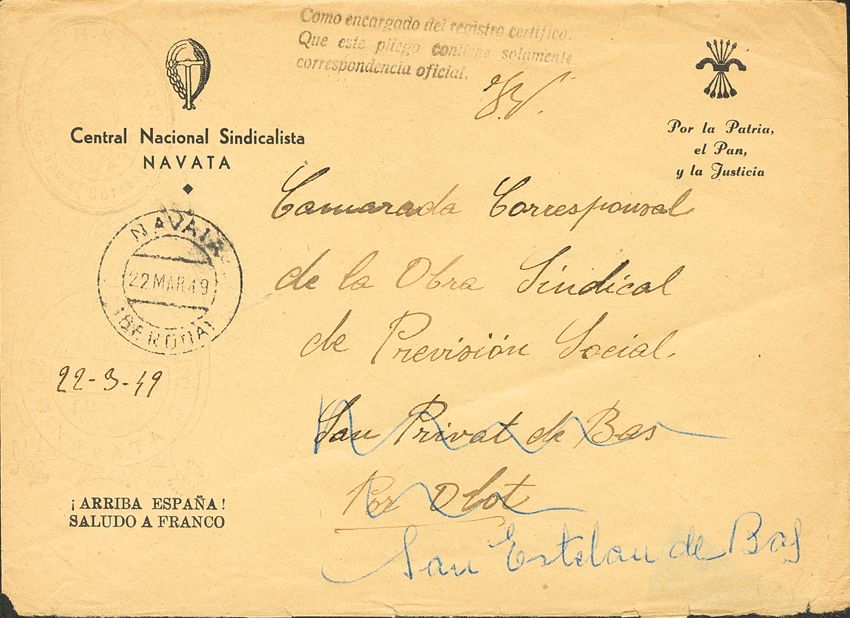 Como encargado del registro certifico.
Que este pliego contiene solamente
correspondencia oficial.
S.N.
Central Nacional Sindicalista
NAVATA
Por la Patria,
el Pan,
y la Justicia
Camarada Corresponsal
de la Obra Sindical
de Previsión Social.
San Privat de Bas
Por Olot
San Esteban de Bas
NAVATA
22 MAR 49
(GERONA)
22-3-49
¡ARRIBA ESPAÑA!
SALUDO A FRANCO